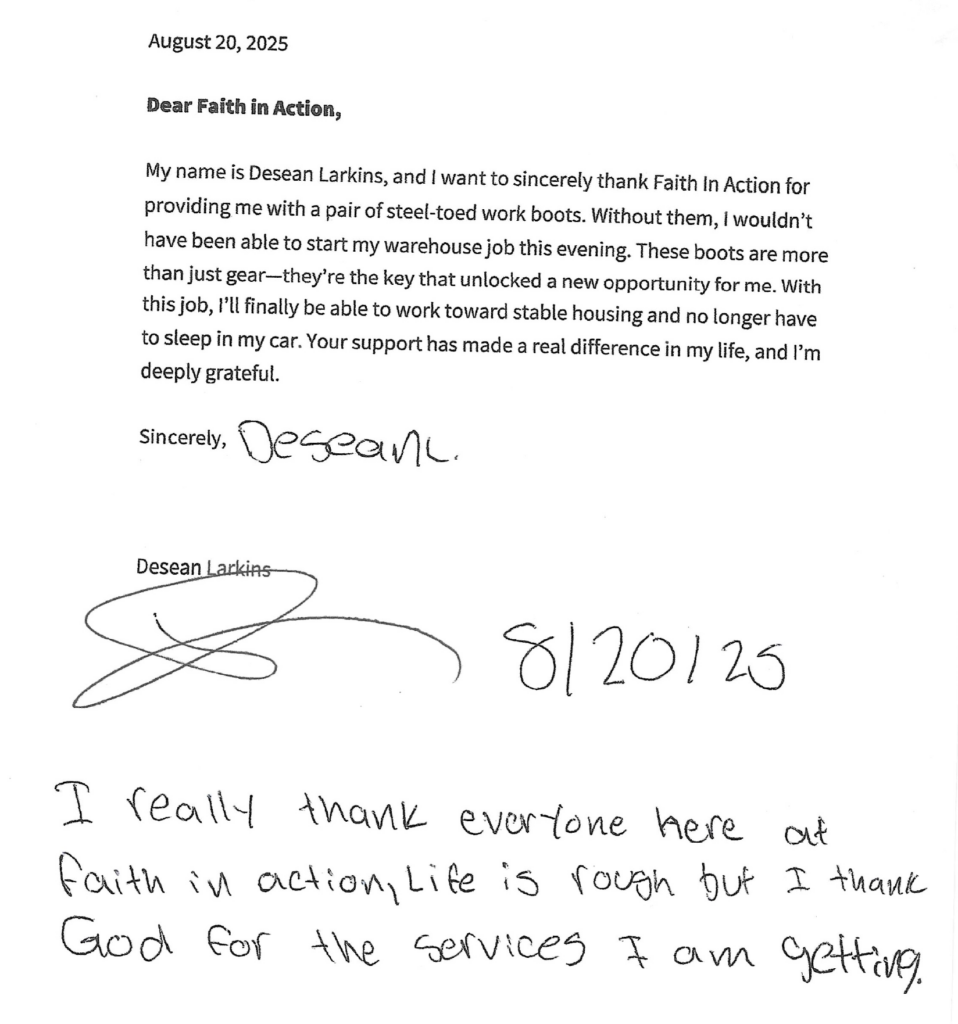 August 20, 2025
Dear Faith in Action,
My name is Desean Larkins, and I want to sincerely thank Faith In Action for
providing me with a pair of steel-toed work boots. Without them, I wouldn't
have been able to start my warehouse job this evening. These boots are more
than just gear—they're the key that unlocked a new opportunity for me. With
this job, I'll finally be able to work toward stable housing and no longer have
to sleep in my car. Your support has made a real difference in my life, and I'm
deeply grateful.
Sincerely, Desean L.
Desean Larkins
8/20/25
I really thank everyone here at
Faith in action, Life is rough but I thank
God for the services I am getting.